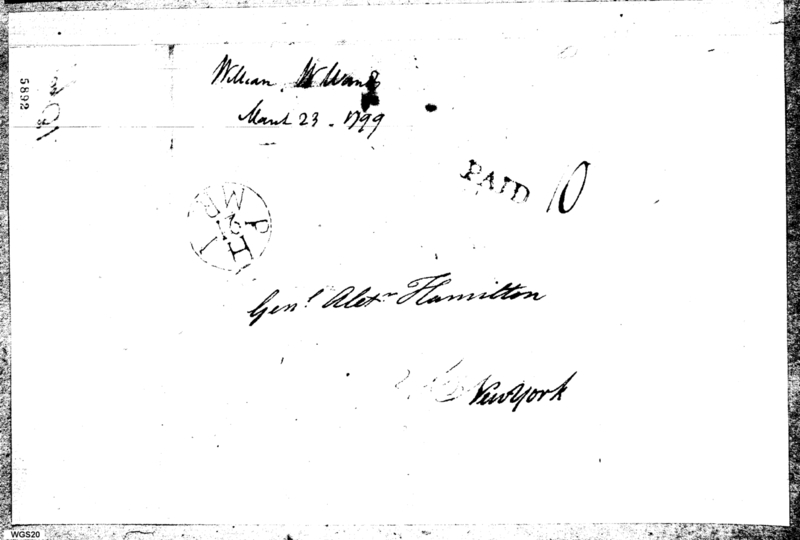 William Willcocks
March 23 - 1799
5892
PAID 10
PHI
MR
Genl. Alexr Hamilton
New York
WGS20